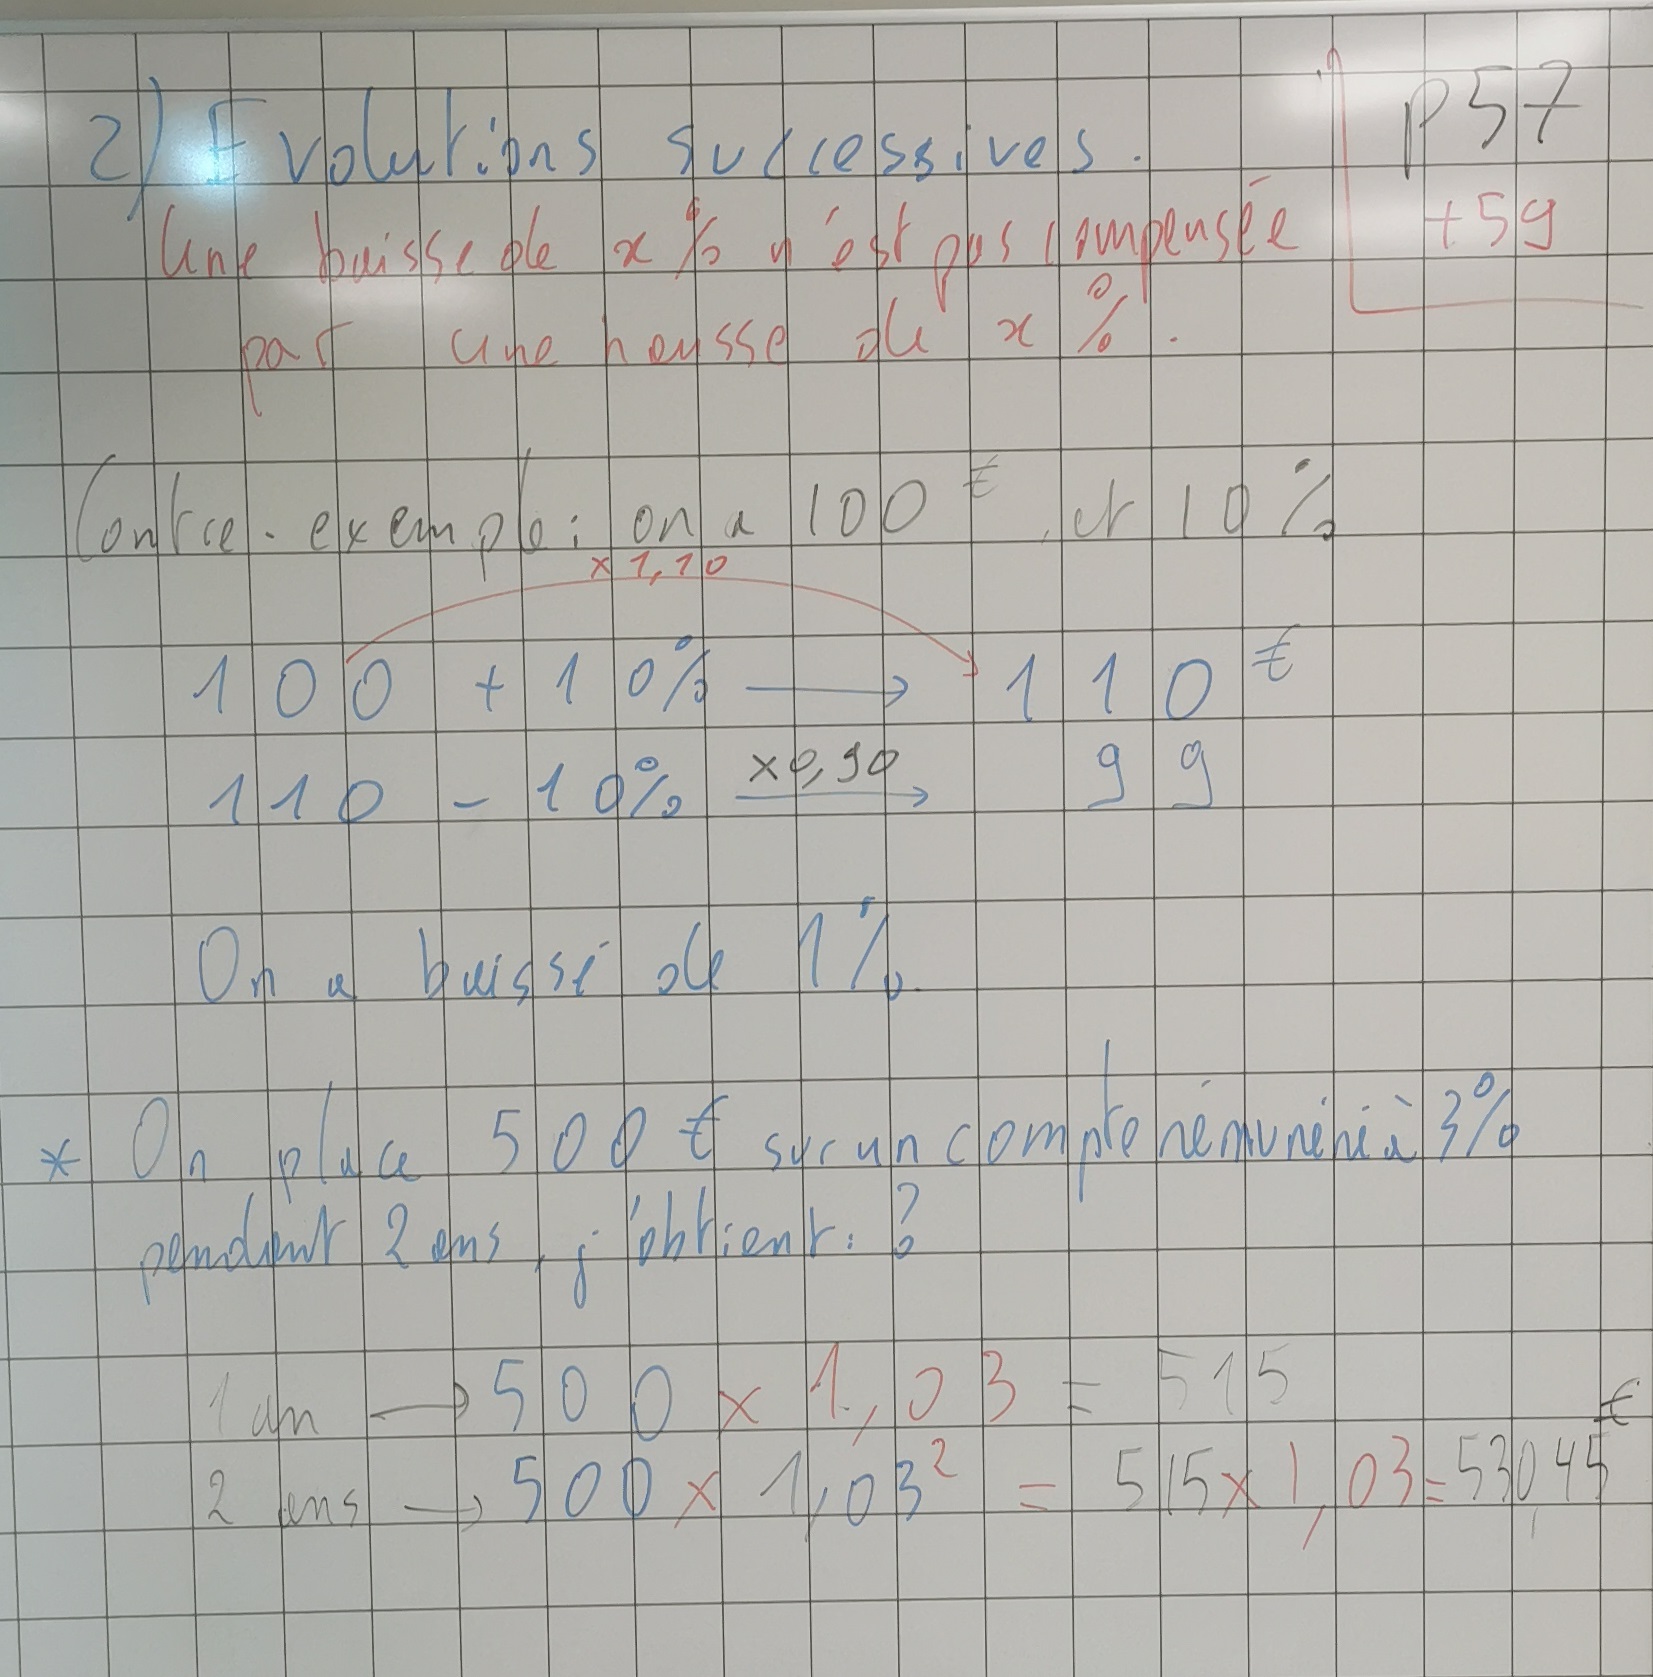 2) Evolutions successives.
p57
+59
Une baisse de x % n'est pas compensée
par une hausse de x %.
Contre-exemple: on a 100 € et 10 %
x 1,10
100 + 10% → 110 €
110 - 10% x0,90 → 99
On a baissé de 1%
* On place 500 € sur un compte rémunéré à 3%
pendant 2 ans, j'obtient: ?
1 an → 500 x 1,03 = 515
2 ans → 500 x 1,03² = 515 x 1,03 = 530,45 €